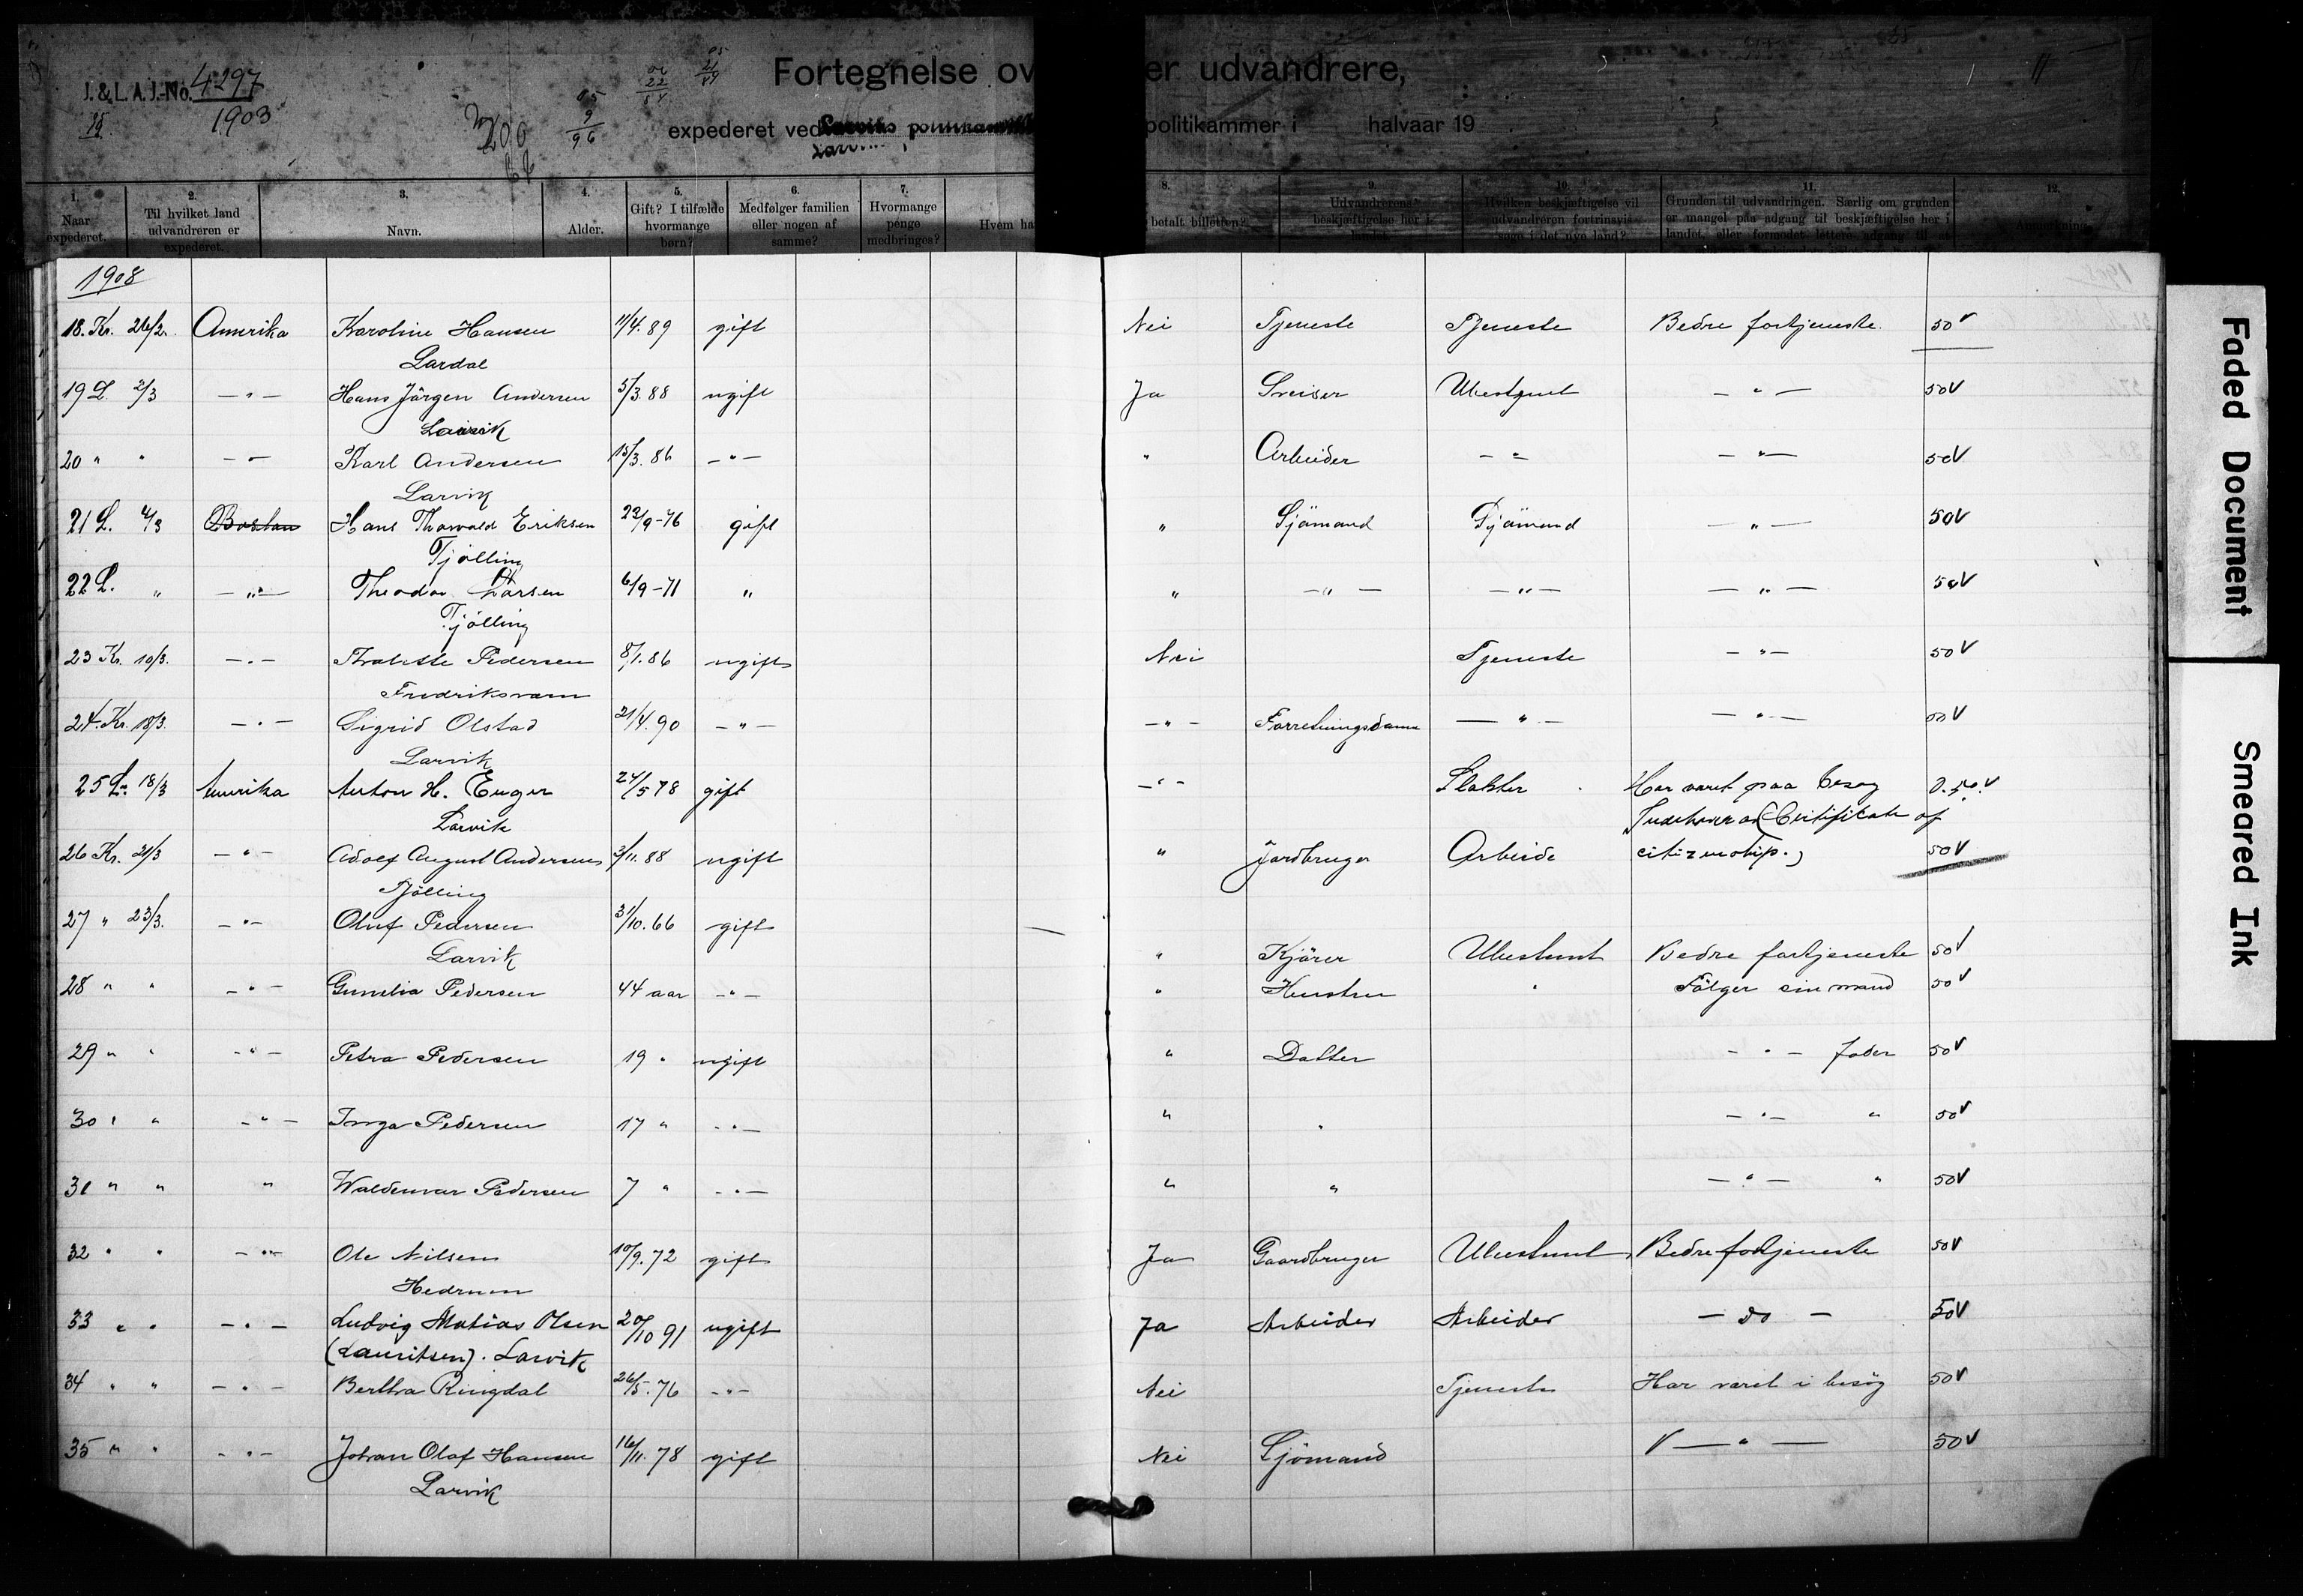 J. & L. A. J.-No. 4297
1903
Fortegnelse ov er udvandrere,
expederet ved politikammer i halvaar 19
1. Naar expederet.
2. Til hvilket land udvandreren er expederet.
3. Navn.
4. Alder.
5. Gift? I tilfælde hvormange børn?
6. Medfølger familien eller nogen af samme?
7. Hvormange penge medbringes?
Hvem ha
8. betalt billetten?
9. Udvandrerens beskjæftigelse her i
10. Hvilken beskjæftigelse vil udvandreren fortrinsvis søge i det nye land?
11. Grunden til udvandringen. Særlig om grunden er mangel paa adgang til beskjæftigelse her i landet eller formodet lettere adgang til at
12. Anmerkning.
1908
18. Kr. 26/2. Amerika Karoline Hansen 11/4.89 gift Nei Tjeneste Tjeneste Bedre fortjeneste. 50 v
Lardal
19 L. 2/3 — " — Hans Jörgen Andersen 5/3.88 ugift Ja Sveiser Ubestemt — " — 50 v
Larvik
20 " " — " — Karl Andersen 15/3.86 — " — " Arbeider — " — — " — 50 v
Larvik
21 L. 4/3 Boston Hans Thorvald Eriksen 22/9-76 gift " Sjömand Sjömand — " — 50 v
Tjölling
22 L. " — " — Theodor Larsen 6/9-71 " " — " — — " — — " — 50 v
Tjölling
23 Kr. 10/3. — " — Thalette Pedersen 8/1.86 ugift Nei Tjeneste — " — 50 v
Fredriksværn
24. Kr. 18/3. — " — Sigrid Olstad 21/4.90 — " — — " — Forretningsdame — " — — " — 50 v
Larvik
25 L. 18/3 Amerika Anton H. Enger 24/5 78 gift — " — Slakter Har været paa besøg 0.50. v
Larvik Indehaver af (Certificate of
26 Kr. 21/3 — " — Adolf August Andersen 3/11.88 ugift " Jordbruger Arbeide citizenship.) 50 v
Tjölling
27 " 23/3. — " — Oluf Pedersen 31/10.66 gift " Kjörer Ubestemt Bedre fortjeneste 50 v
Larvik
28 " " — " — Gunelia Pedersen 44 aar — " — " Hustru " Fölger sin mand 50 v
29 " " — " — Petra Pedersen 19 " ugift " Datter — " — fader 50 v
30 " " — " — Inga Pedersen 17 " — " — " " — " — " 50 v
31 " " " Waldemar Pedersen 7 " — " — " " — " — " 50 v
32 " " — " — Ole Nilsen 10/9.72 gift Ja Gaardbruger Ubestemt Bedre fortjeneste 50 v
Hedrum
33 " " — " — Ludvig Matias Olsen 20/10 91 ugift Ja Arbeider Arbeider — do — 50 v
(Lauritsen). Larvik
34 " " — " — Bertha Ringdal 26/5.76 — " — Nei Tjeneste Har været i besög 50 v
35 " " — " — Johan Olaf Hansen 16/11.78 gift Nei Sjömand v — " — 50 v
Larvik
Faded Document
Smeared Ink